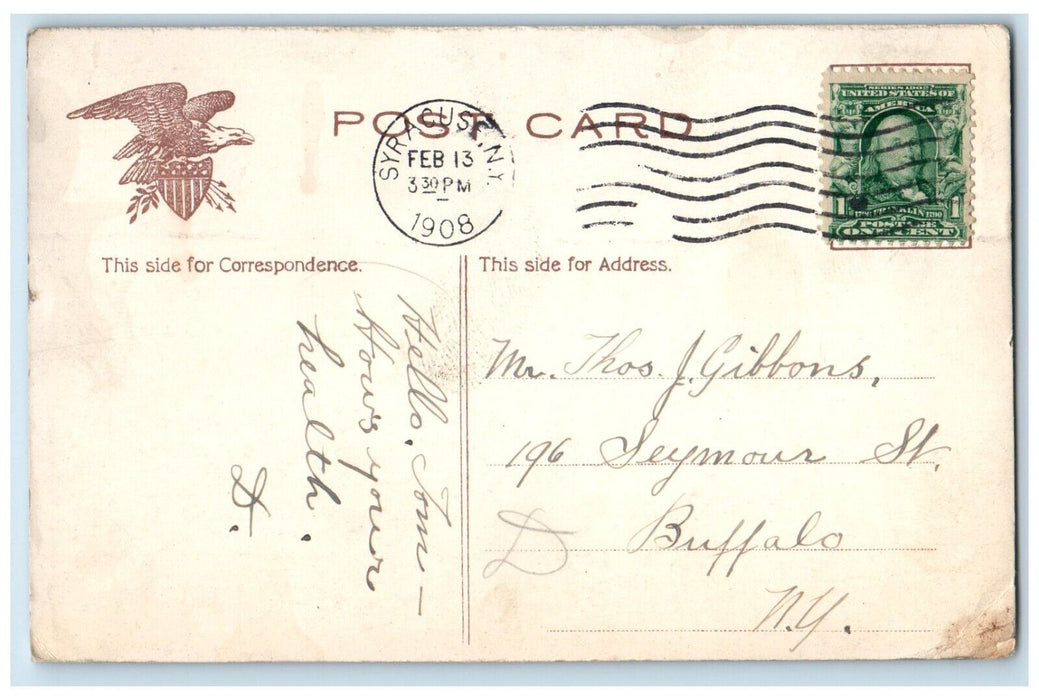 POST CARD
SYRACUSE, N.Y.
FEB 13
3 30 PM
1908
SERIES 1902
UNITED STATES OF
AMERICA
1706 FRANKLIN 1790
1 POSTAGE 1
ONE CENT
This side for Correspondence.
This side for Address.
Hello. Tom –
How's your
health.
D.
Mr. Thos. J. Gibbons,
196 Seymour St.
Buffalo
N.Y.
D